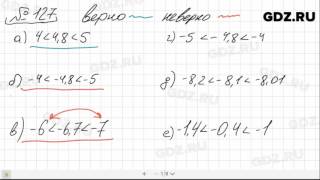 № 127 верно неверно GDZ.RU
а) 4<4,8<5 г) -5<-4,8<-4
б) -4<-4,8<-5 д) -8,2<-8,1<-8,01
в) -6<-6,7<-7 е) -1,4<-0,4<-1
GDZ.RU